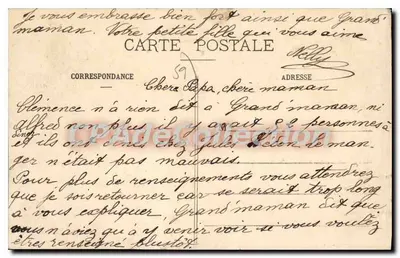 Je vous embrasse bien fort ainsi que Grand'
maman. Votre petite fille qui vous aime
Nelly
CARTE POSTALE
59
CORRESPONDANCE
ADRESSE
Chers Papa, chère maman
Clémence n'a rien dit à Grand'maman, ni
Alfred non plus il y avait 82 personnes à
diner
et ils ont bien le man-
ger n'était pas mauvais.
Pour plus de renseignements vous attendrez
que je sois retourner car se serait trop long
à vous expliquer. Grand'maman dit que
vous n'aviez qu'à y venir voir si vous voulez
êtres renseigné plustôt.